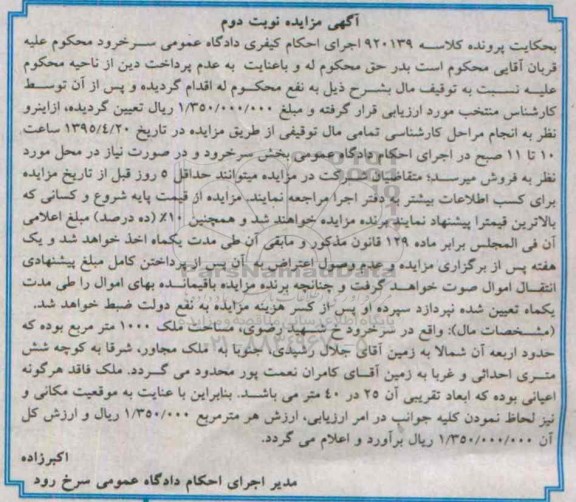 آگهی مزایده نوبت دوم
بحکایت پرونده کلاسه ۹۲۰۱۳۹ اجرای احکام کیفری دادگاه عمومی سرخرود محکوم علیه
قربان آقایی محکوم است بدر حق محکوم له و باعنایت به عدم پرداخت دین از ناحیه محکوم
علیه نسبت به توقیف مال بشرح ذیل به نفع محکوم له اقدام گردیده و پس از آن توسط
کارشناس منتخب مورد ارزیابی قرار گرفته و مبلغ ۱/۳۵۰/۰۰۰/۰۰۰ ریال تعیین گردیده، ازاینرو
نظر به انجام مراحل کارشناسی تمامی مال توقیفی از طریق مزایده در تاریخ ۱۳۹۵/۴/۲۰ ساعت
۱۰ تا ۱۱ صبح در اجرای احکام دادگاه عمومی بخش سرخرود و در صورت نیاز در محل مورد
نظر به فروش میرسد؛ متقاضیان شرکت در مزایده میتوانند حداقل ۵ روز قبل از تاریخ مزایده
برای کسب اطلاعات بیشتر به دفتر اجرا مراجعه نمایند. مزایده از قیمت پایه شروع و کسانی که
بالاترین قیمترا پیشنهاد نمایند برنده مزایده خواهند شد و همچنین ۱۰٪ (ده درصد) مبلغ اعلامی
آن فی المجلس برابر ماده ۱۲۹ قانون مذکور و مابقی آن طی مدت یکماه اخذ خواهد شد و یک
هفته پس از برگزاری مزایده و عدم وصول اعتراض به آن پس از پرداختن کامل مبلغ پیشنهادی
انتقال اموال صوت خواهد گرفت و چنانچه برنده مزایده باقیمانده بهای اموال را طی مدت
یکماه تعیین شده نپردازد سپرده او پس از کسر هزینه مزایده به نفع دولت ضبط خواهد شد.
(مشخصات مال): واقع در سرخرود خ شهید رضوی، مساحت ملک ۱۰۰۰ متر مربع بوده که
حدود اربعه آن شمالا به زمین آقای جلال رشیدی، جنوبا به ملک مجاور، شرقا به کوچه شش
متری احداثی و غربا به زمین آقای کامران نعمت پور محدود می گردد. ملک فاقد هرگونه
اعیانی بوده که ابعاد تقریبی آن ۲۵ در ۴۰ متر می باشد. بنابراین با عنایت به موقعیت مکانی و
نیز لحاظ نمودن کلیه جوانب در امر ارزیابی، ارزش هر مترمربع ۱/۳۵۰/۰۰۰ ریال و ارزش کل
آن ۱/۳۵۰/۰۰۰/۰۰۰ ریال برآورد و اعلام می گردد.
اکبرزاده
مدیر اجرای احکام دادگاه عمومی سرخ رود
ParsNamadData